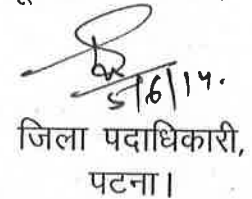 5/6/14.
जिला पदाधिकारी,
पटना।